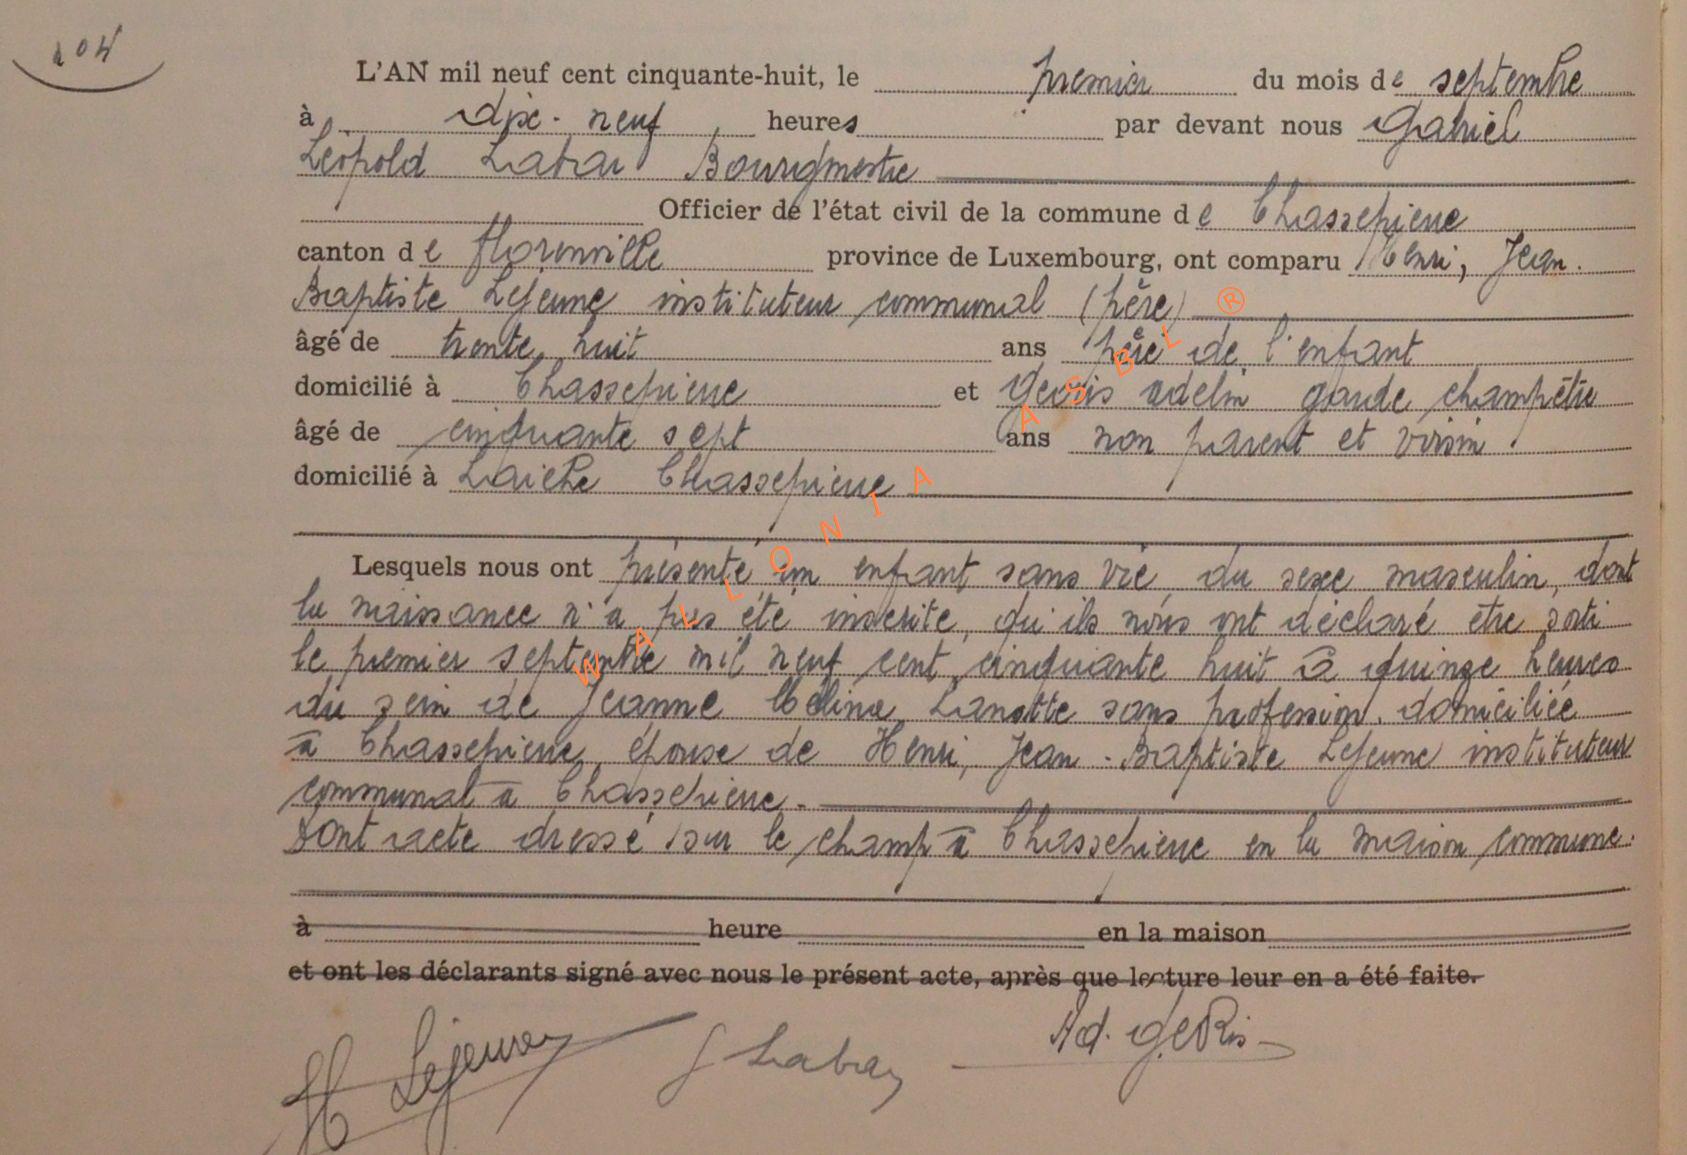 204
L'AN mil neuf cent cinquante-huit, le premier du mois de septembre
à dix-neuf heures par devant nous Gabriel
Léopold Labar Bourgmestre
Officier de l'état civil de la commune de Chassepierre
canton de Florenville province de Luxembourg, ont comparu Henri, Jean-
Baptiste Lejeune instituteur communal (père)
âgé de trente huit ans père de l'enfant
domicilié à Chassepierre et Geris Adelin garde champêtre
âgé de cinquante sept ans non parent et voisin
domicilié à Laiche Chassepierre
Lesquels nous ont présenté un enfant sans vie du sexe masculin, dont
la naissance n'a pas été inscrite, qu'ils nous ont déclaré être sorti
le premier septembre mil neuf cent cinquante huit à quinze heures
du sein de Jeanne Célina Lanotte sans profession, domiciliée
à Chassepierre, épouse de Henri, Jean-Baptiste Lejeune instituteur
communal à Chassepierre.
Dont acte dressé sur le champ à Chassepierre en la maison commune.
à heure en la maison
et ont les déclarants signé avec nous le présent acte, après que lecture leur en a été faite.
H Lejeune G Labar Ad. Geris
WALLONIA ASBL ®